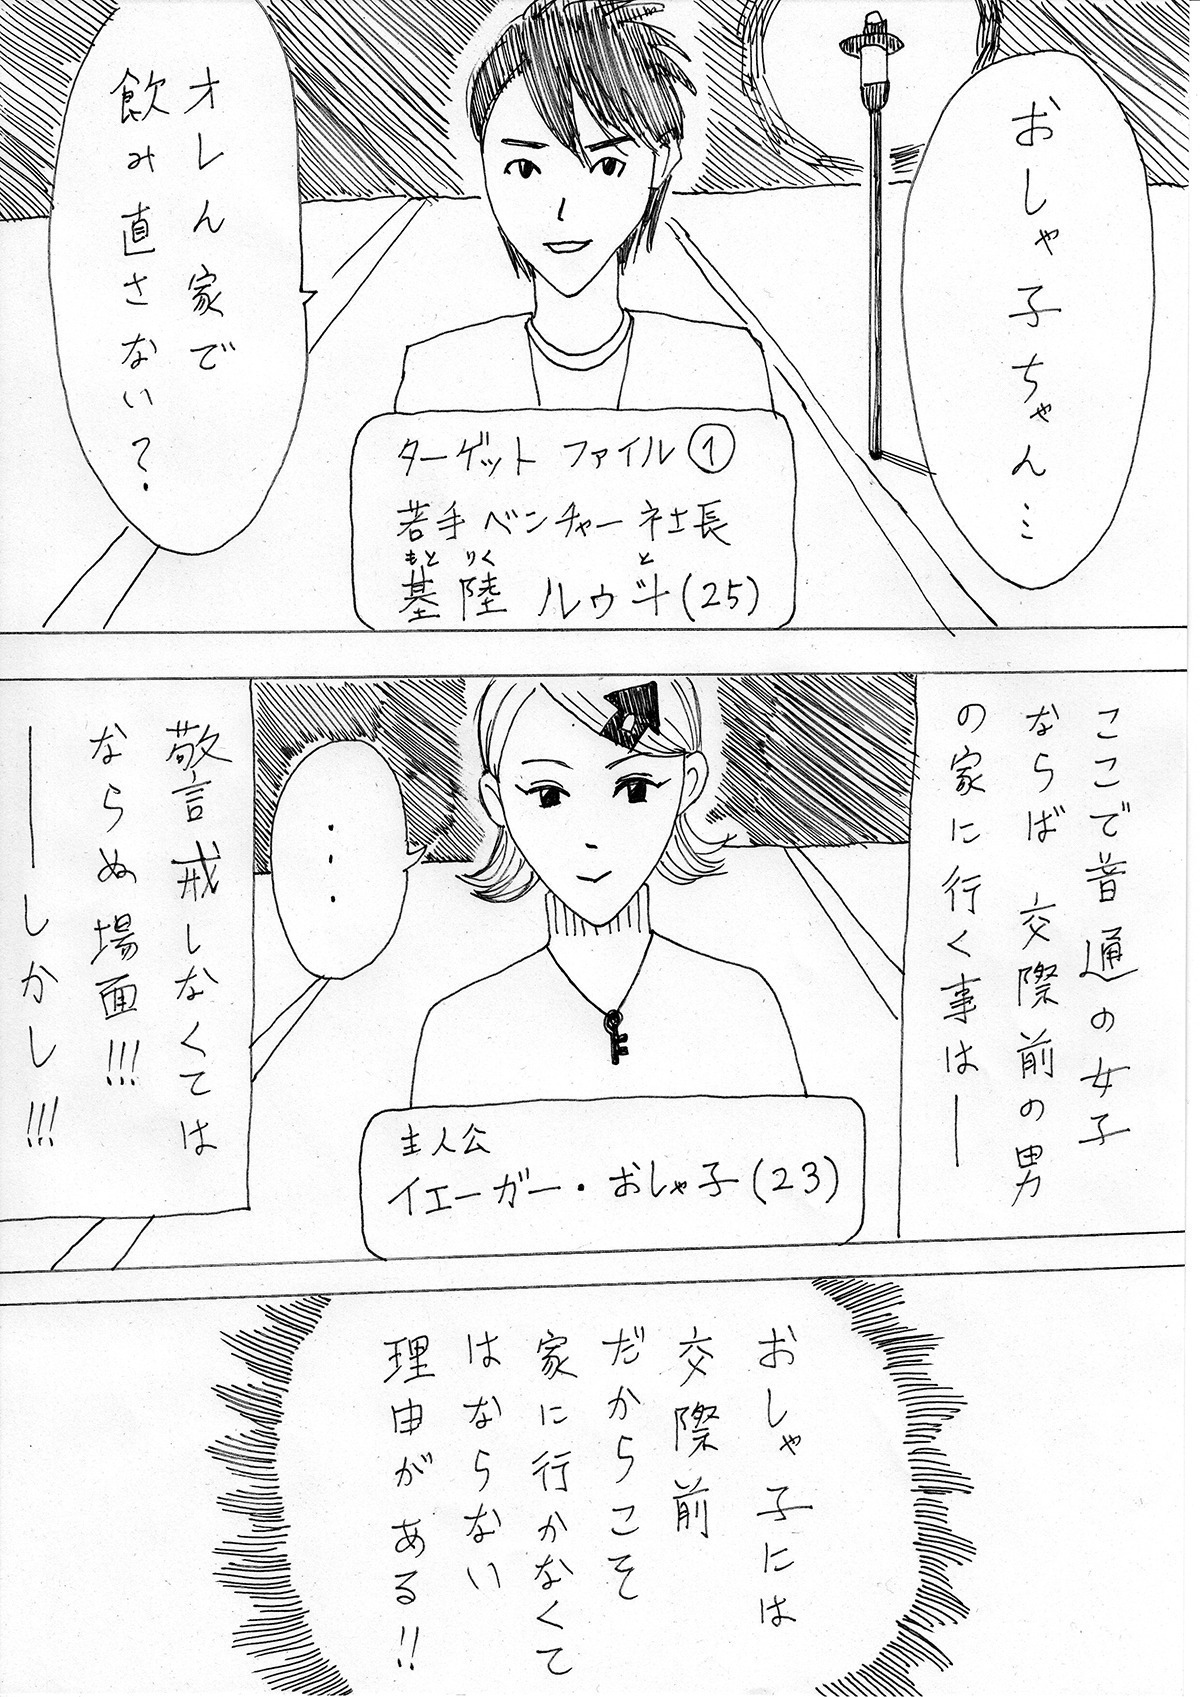 おしゃ子ちゃん…
オレん家で
飲み直さない？
ターゲット ファイル①
若手ベンチャー社長
もと りく と
基陸 ルゥ斗(25)
ここで普通の女子
ならば 交際前の男
の家に行く事は―
…
主人公
イエーガー・おしゃ子(23)
警戒しなくては
ならぬ場面!!!
――しかし!!!
おしゃ子には
交際前
だからこそ
家に行かなくて
はならない
理由がある!!